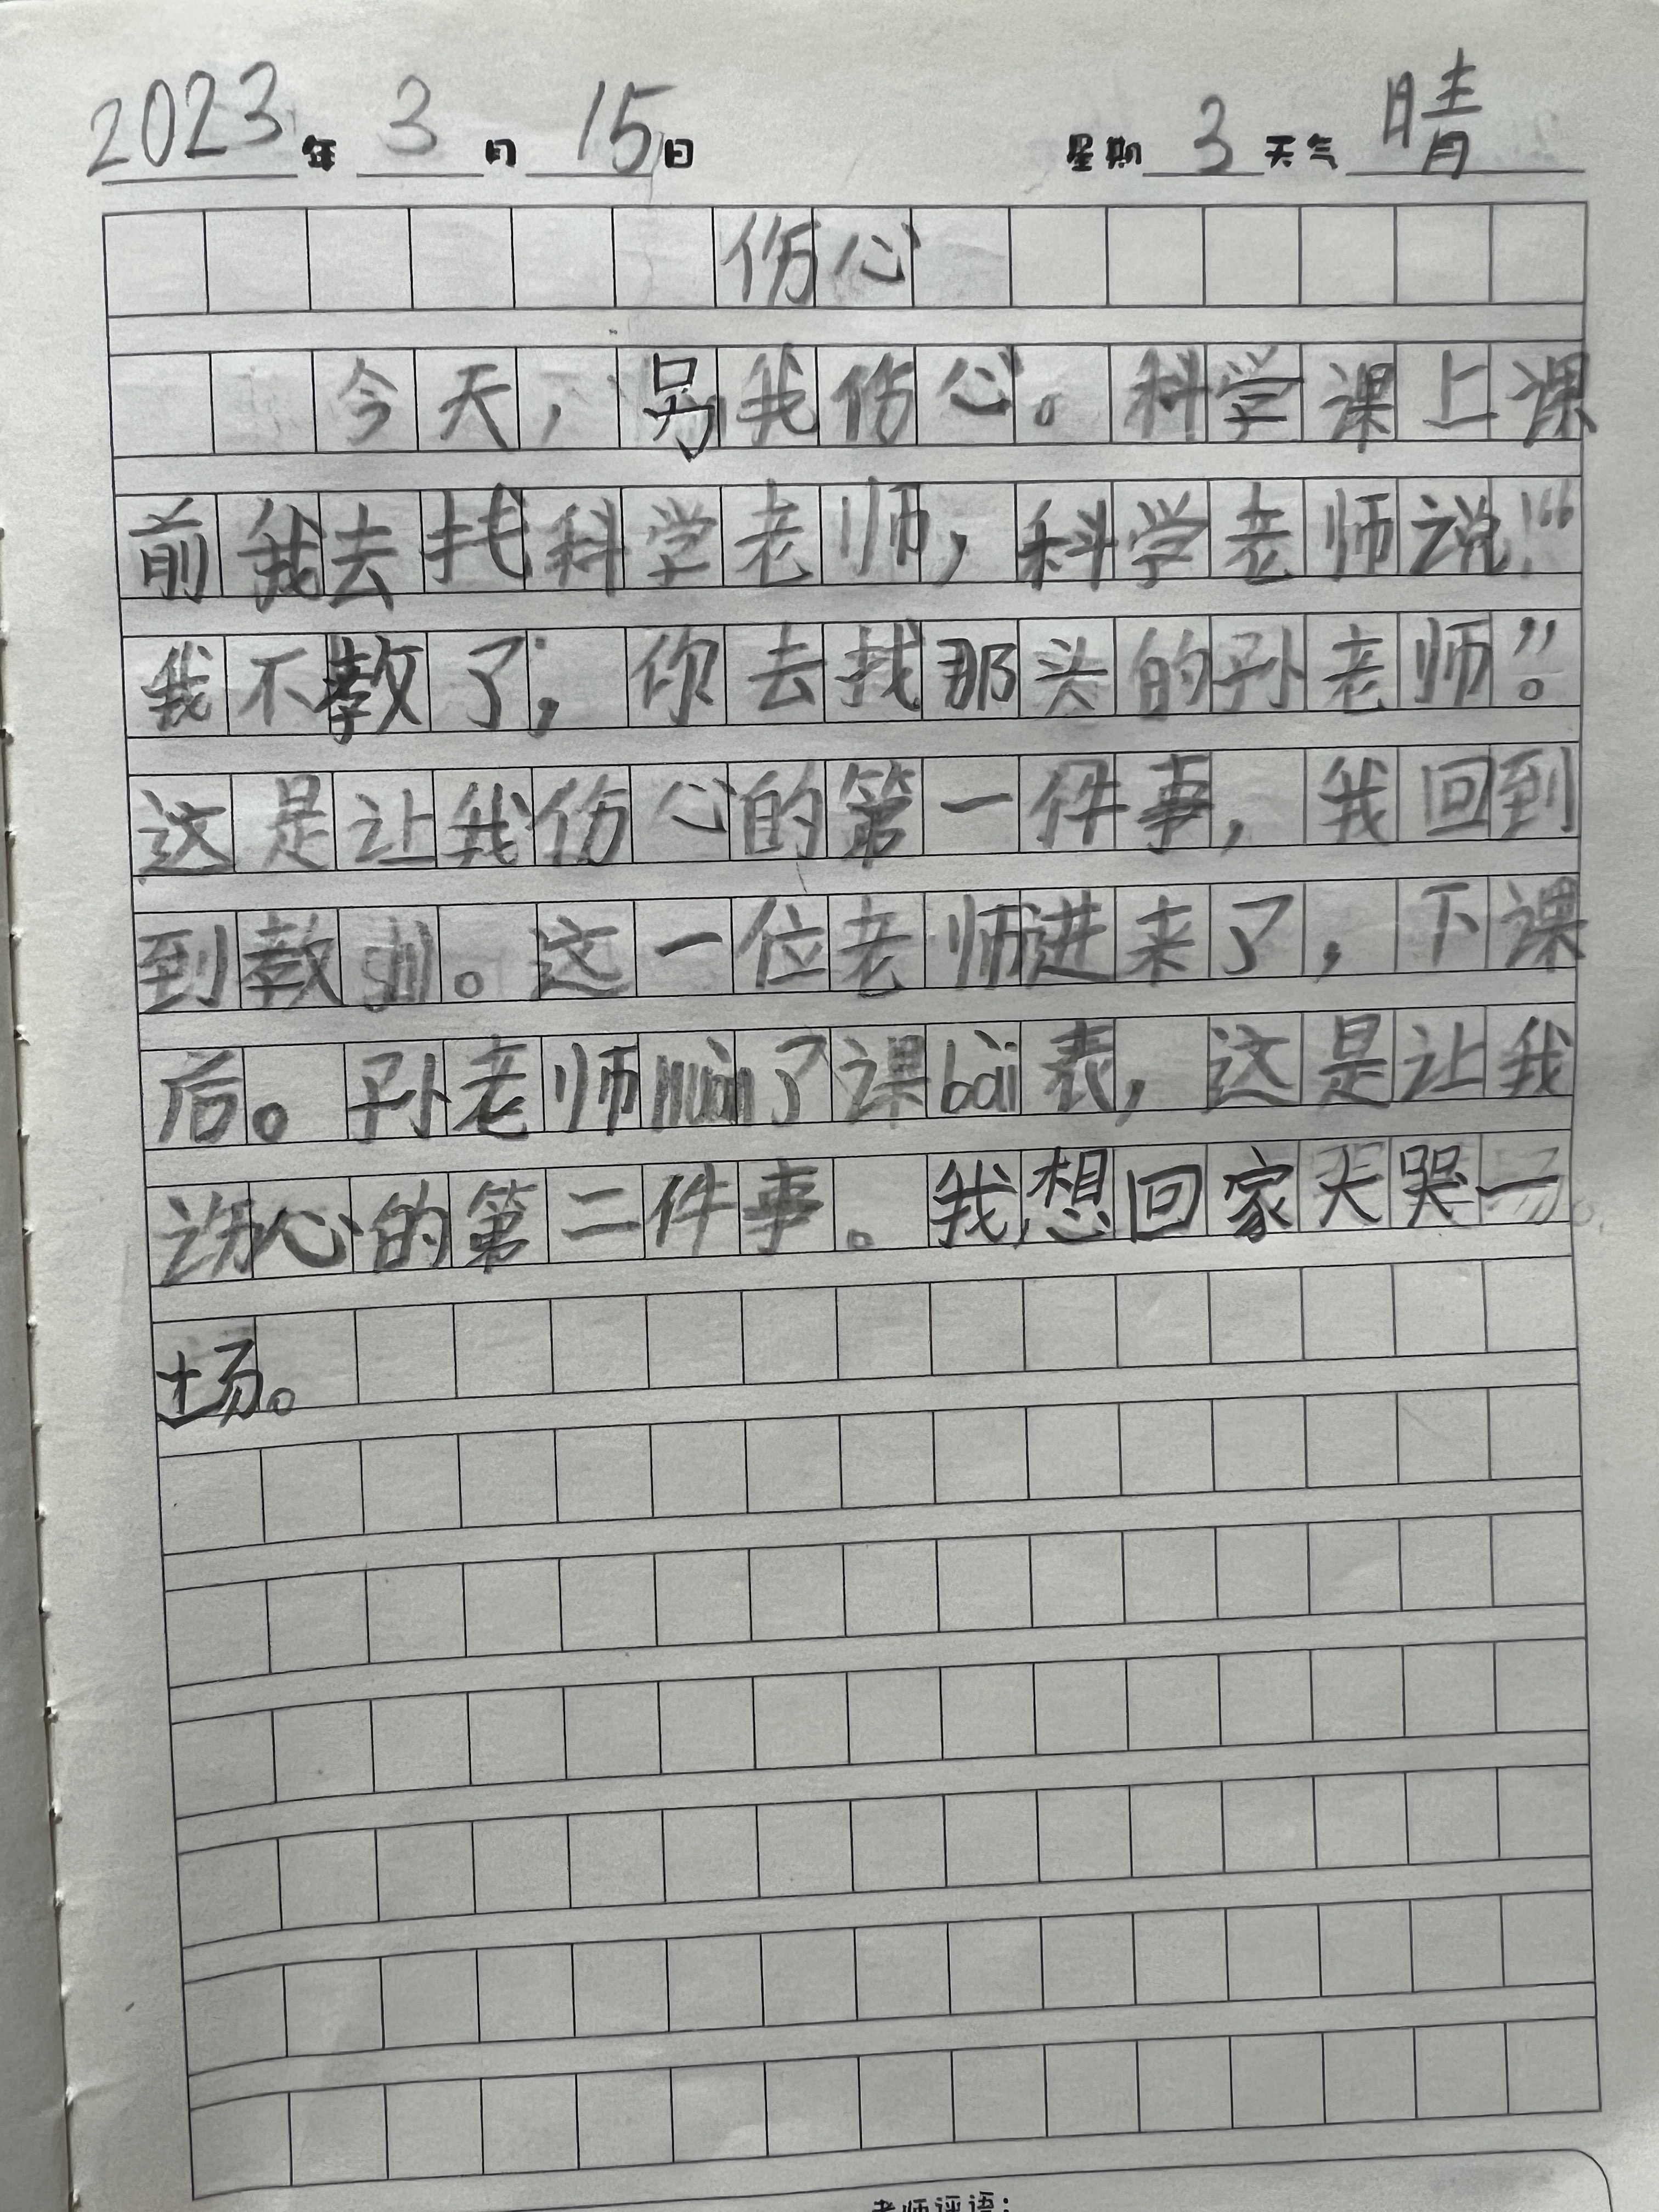 2023年 3 月 15日 星期 3 天气 晴
伤心
今天，另我伤心。科学课上课
前我去找科学老师，科学老师说：“
我不教了，你去找那头的孙老师”。
这是让我伤心的第一件事，我回到
到教 。这一位老师进来了，下课
后。孙老师 了课bāi表，这是让我
心的第二件事。我想回家大哭一
场。
老师评语：